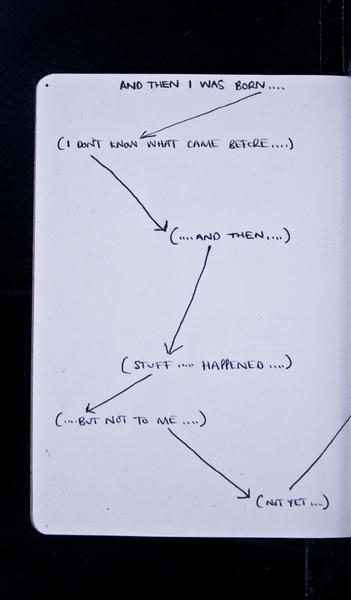 AND THEN I WAS BORN....
(I DON'T KNOW WHAT CAME BEFORE....)
(....AND THEN....)
(STUFF .... HAPPENED ....)
(....BUT NOT TO ME ....)
(NOT YET ....)